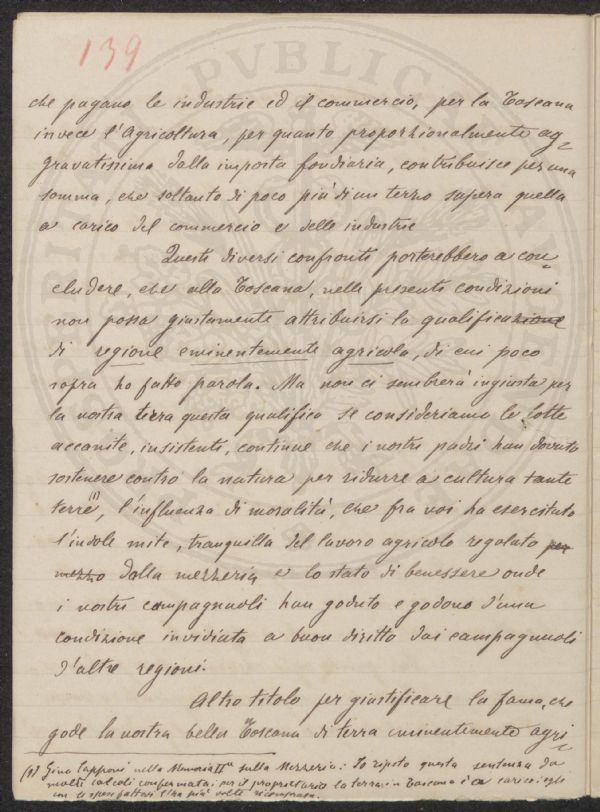 139
che pagano le industrie ed il commercio, per la Toscana
invece l'Agricoltura, per quanto proporzionalmente ag=
gravatissima dalla imposta fondiaria, contribuisce per una
somma, che soltanto di poco più di un terzo supera quella
a carico del commercio e delle industrie
Questi diversi confronti porterebbero a con=
cludere, che alla Toscana, nelle presenti condizioni
non possa giustamente attribuirsi la qualificazione
di regione eminentemente agricola, di cui poco
sopra ho fatto parola. Ma non ci sembrerà ingiusta per
la nostra terra questa qualifica se consideriamo le lotte
accanite, insistenti, continue che i nostri padri han dovuto
sostenere contro la natura per ridurre a cultura tante
terre (1), l'influenza di moralità, che fra noi ha esercitato
l'indole mite, tranquilla del lavoro agricolo regolato per
mezzo dalla mezzeria, e lo stato di benessere onde
i nostri campagnuoli han goduto e godono d'una
condizione invidiata a buon diritto dai campagnuoli
d'altre regioni.
Altro titolo per giustificare la fama, che
gode la nostra bella Toscana di terra eminentemente agri=
(1) Gino Capponi nella Memoria IIa sulla Mezzeria: Io ripeto questa sentenza da
molti calcoli confermata: per il proprietario la terra in Toscana è a carico: egli
con le spese fattevi l'ha più volte ricomprata.
PVBLICA